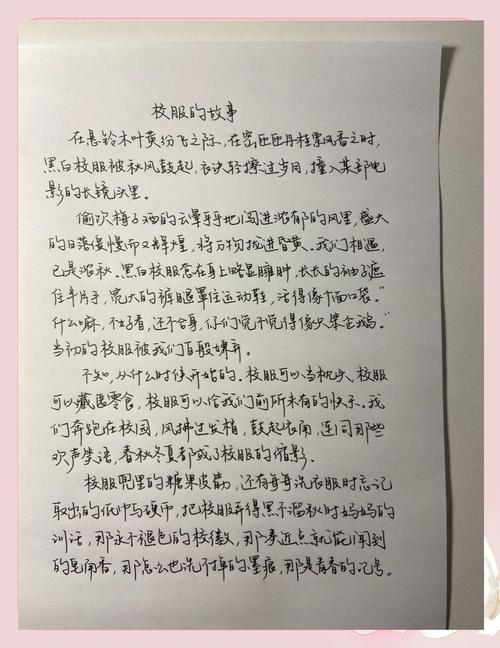 校服的故事
在悬铃木叶黄纷飞之际，在密匝匝丹桂飘香之时，
黑白校服被秋风鼓起，衣决轻擦过岁月，撞入某部电
影的长镜头里。
偷欢梅子酒的云晕乎乎地闯进浓郁的风里，盛大
的日落缓慢而又辉煌，将万物拢进昏黄。我们相遇，
已是浓秋。黑白校服套在身上略显臃肿，长长的袖子遮
住半片手，宽大的裤腿罩住运动鞋，活得像个面口袋。"
什么嘛，不好看，还不合身，你们觉不觉得像只笨企鹅。"
当初的校服被我们百般嫌弃。
不知，从什么时候开始的。校服可以当枕头，校服
可以藏匿零食，校服可以给我们前所未有的快乐。我
们奔跑在校园，风拂过发梢，鼓起衣角，连同那些
欢声笑语，春秋冬夏都成了校服的缩影。
校服兜里的糖果皮筋，还有每每洗衣服时忘记
取出的纸巾与硬币，把校服弄得黑不溜秋时妈妈的
训话，那永不褪色的校徽，那凑近点就能闻到
的皂角香，那怎么也洗不掉的墨痕，那是青春的记号。